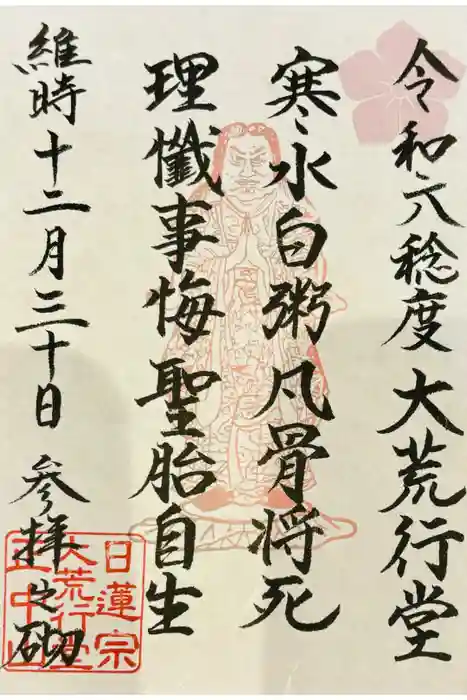 令和六稔度 大荒行堂
寒水白粥凡骨将死
理懺事悔聖胎自生
維時十二月三十日 参拝之砌
日蓮宗
大荒行堂
正中山